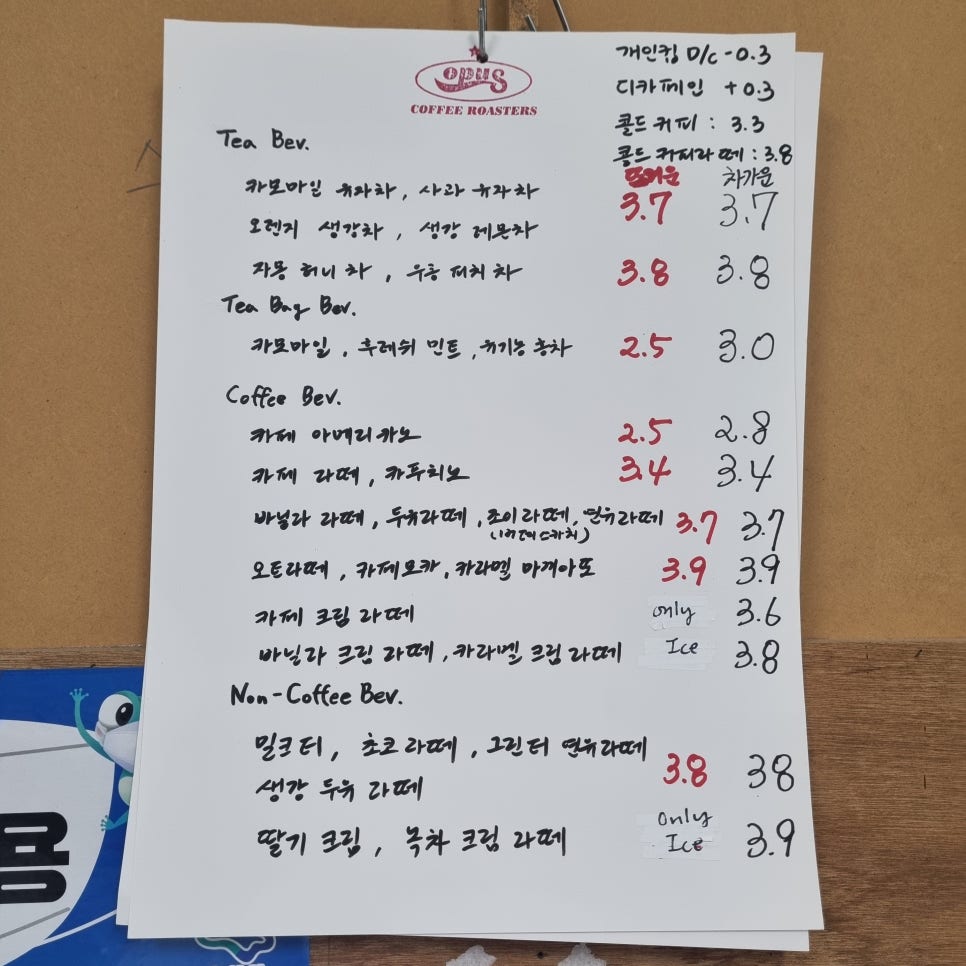 opus
COFFEE ROASTERS
개인컵 D/c -0.3
디카페인 +0.3
콜드 커피 : 3.3
콜드 커피라떼 : 3.8
Tea Bev.
뜨거운 차가운
카모마일 유자차, 사과 유자차 3.7 3.7
오렌지 생강차, 생강 레몬차
자몽 허니 차, 우롱 피치 차 3.8 3.8
Tea Bag Bev.
카모마일, 후레쉬 민트, 유기농 홍차 2.5 3.0
Coffee Bev.
카페 아메리카노 2.5 2.8
카페 라떼, 카푸치노 3.4 3.4
바닐라 라떼, 두유라떼, 조이라떼, 연유라떼 3.7 3.7
(버터스카치)
오트라떼, 카페모카, 카라멜 마끼아또 3.9 3.9
카페 크림 라떼 only 3.6
바닐라 크림 라떼, 카라멜 크림 라떼 Ice 3.8
Non-Coffee Bev.
밀크티, 초코라떼, 그린티 연유라떼
3.8 38
생강 두유 라떼
only
딸기 크림, 녹차 크림 라떼 Ice 3.9
용